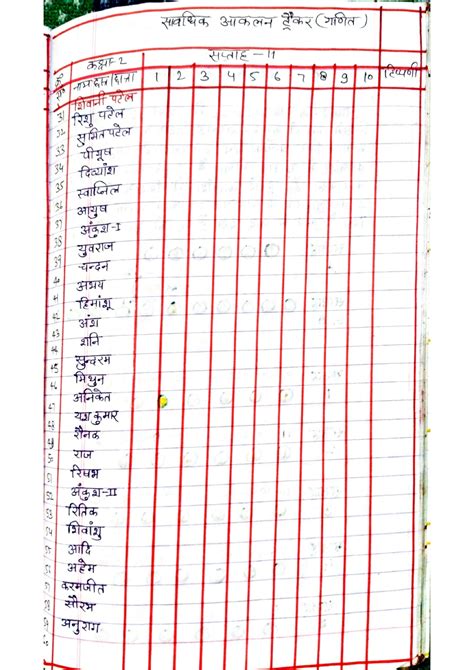 सावधिक आकलन ट्रैकर (गणित)
कक्षा-2 सप्ताह-11
नाम छात्र/छात्रा 1 2 3 4 5 6 7 8 9 10 टिप्पणी
शिवानी पटेल
31 रिशू पटेल
32 सुमित पटेल
33 पीयूष
34 दिव्यांश
35 स्वाप्निल
36 आयुष
37 अंकुश-I
38 युवराज
39 चन्दन
40 अभय
41 हिमांशू
42 अंश
43 शनि
44 सुन्दरम
45 मिथुन
46 अनिकेत
47 यश कुमार
48 शैनक
49 राज
50 रिषभ
51 अंकुश-II
52 रितिक
53 शिवांशु
54 आदि
55 अहेम
56 करमजीत
सौरभ
अनुराग